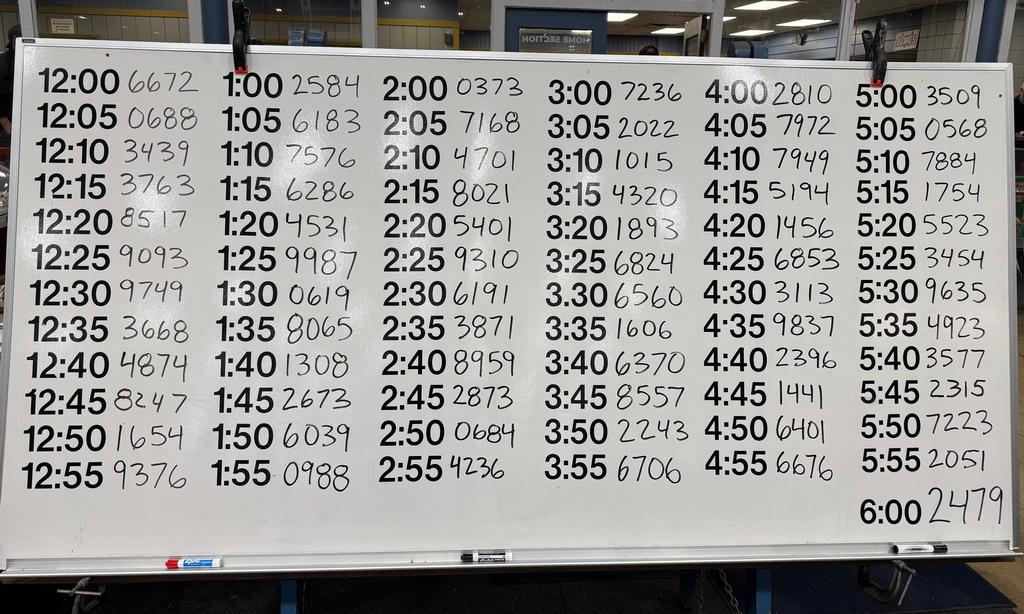 HOME SECTION
12:00 6672 1:00 2584 2:00 0373 3:00 7236 4:00 2810 5:00 3509
12:05 0688 1:05 6183 2:05 7168 3:05 2022 4:05 7972 5:05 0568
12:10 3439 1:10 7576 2:10 4701 3:10 1015 4:10 7949 5:10 7884
12:15 3763 1:15 6286 2:15 8021 3:15 4320 4:15 5194 5:15 1754
12:20 8517 1:20 4531 2:20 5401 3:20 1893 4:20 1456 5:20 5523
12:25 9093 1:25 9987 2:25 9310 3:25 6824 4:25 6853 5:25 3454
12:30 9749 1:30 0619 2:30 6191 3.30 6560 4:30 3113 5:30 9635
12:35 3668 1:35 8065 2:35 3871 3:35 1606 4:35 9837 5:35 4923
12:40 4874 1:40 1308 2:40 8959 3:40 6370 4:40 2396 5:40 3577
12:45 8247 1:45 2673 2:45 2873 3:45 8557 4:45 1441 5:45 2315
12:50 1654 1:50 6039 2:50 0684 3:50 2243 4:50 6401 5:50 7223
12:55 9376 1:55 0988 2:55 4236 3:55 6706 4:55 6676 5:55 2051
6:00 2479